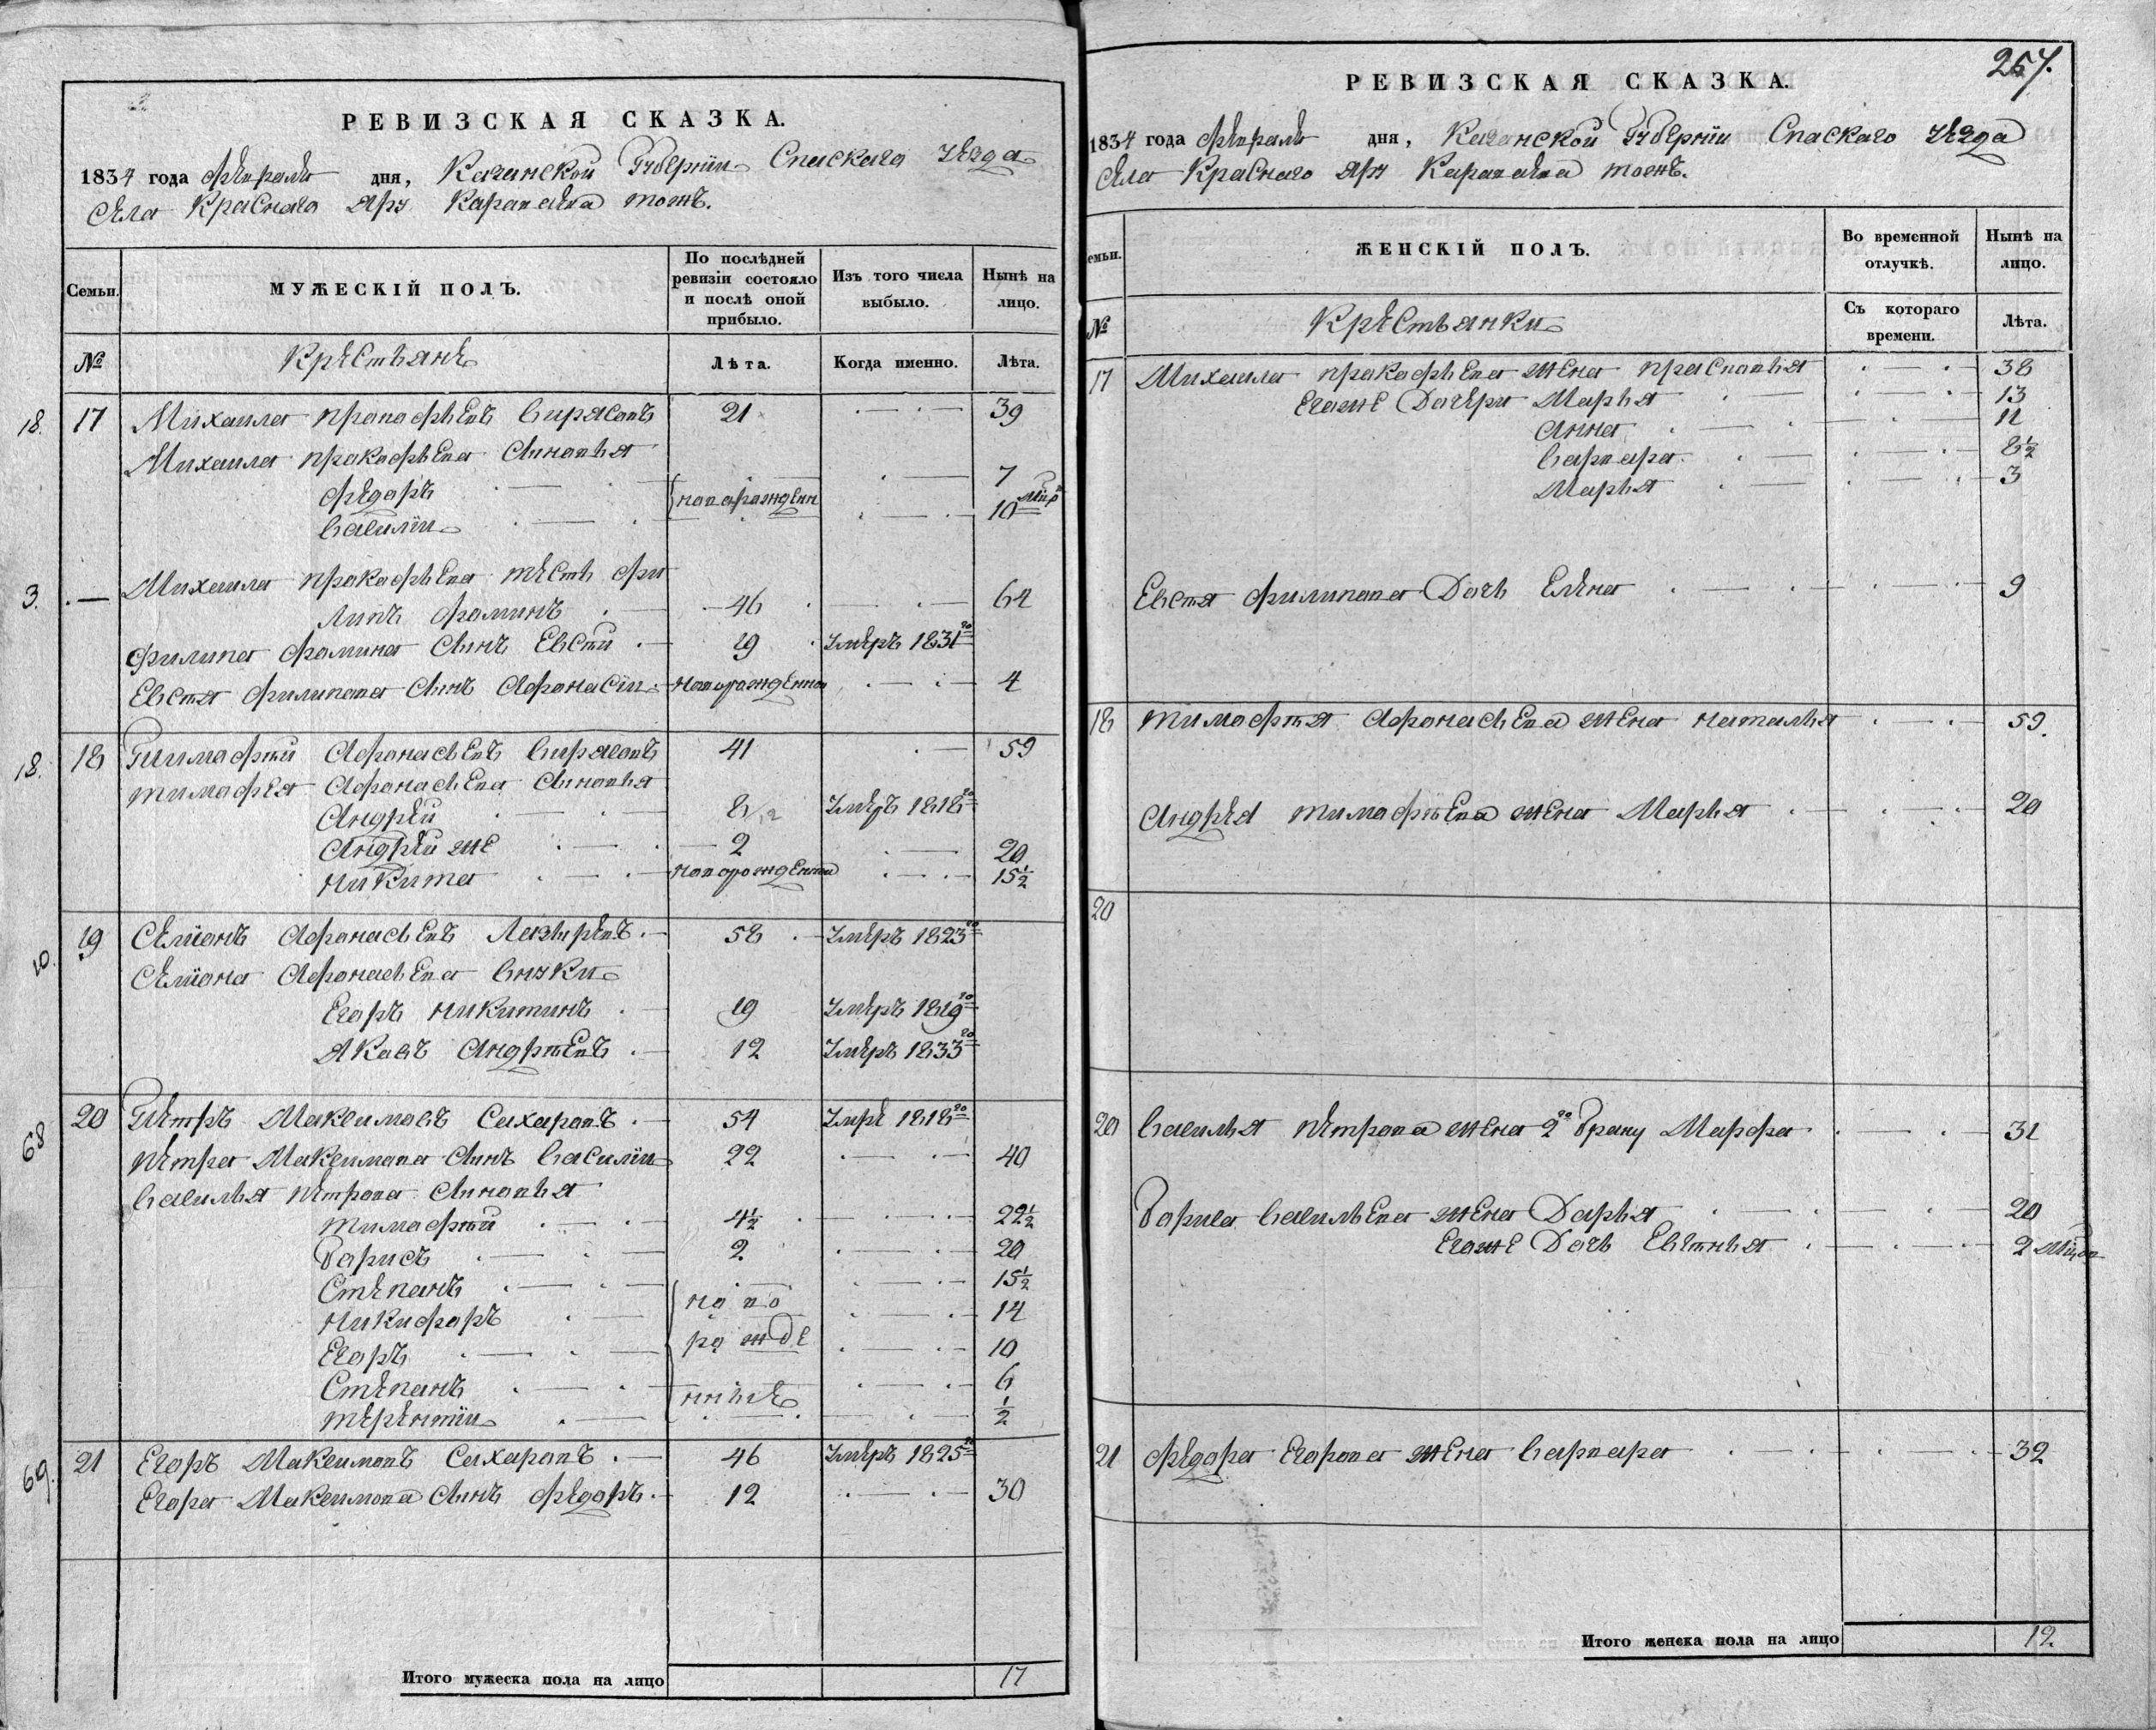 РЕВИЗСКАЯ СКАЗКА.
1834 года февраля дня, Казанской Губернии Спаскаго уезда
села Краснаго Яру Караваева тожъ.
Семьи.
МУЖЕСКІЙ ПОЛЪ.
По послѣдней ревизіи состояло и послѣ оной прибыло.
Изъ того числа выбыло.
Нынѣ на лицо.
№
Крестьяне
Лѣта.
Когда именно.
Лѣта.
18. 17 Михаила Пракофьевъ 21 39
Михаила Пракофьева сыновья
Федоръ 7
новорожден
Василии 10
3. Михаила Пракофьева тесть Фи
липъ Фоминъ 46 64
Филипа Фомина сынъ Евсти 19 умеръ 1831го
Евстя Филипова сынъ Афонасии новорожденнои 4
18. 18 Тимофѣи Афонасьевъ 41 59
Тимофея Афонасьева сыновья
Андреи умеръ 1818го
Андреи же 2 20
Никита новорожденнои 15½
10. 19 Семионъ Афонасьевъ Лазаревъ 58 умеръ 1823го
Семиона Афонасьева внуки
Егоръ Никитинъ 19 умеръ 1819го
Яковъ Андрѣевъ 12 умеръ 1833го
68 20 Петръ Максимовъ Сахаровъ 54 умре 1818го
Петра Максимова сынъ Василии 22 40
Василья Петрова сыновья
Тимофѣи 4½ 22½
Борисъ 2 20
Степанъ 15½
ново
Никифоръ 14
рожде
Егоръ 10
Степанъ 6
нные
Терентии ½
69. 21 Егоръ Максимовъ Сахаровъ 46 умеръ 1825го
Егора Максимова сынъ Федоръ 12 30
Итого мужеска пола на лицо 17
257.
РЕВИЗСКАЯ СКАЗКА.
1834 года февраля дня, Казанской Губернии Спаскаго уезда
села Краснаго Яру Караваева тожъ.
емьи.
ЖЕНСКІЙ ПОЛЪ.
Во временной отлучкѣ.
Нынѣ на лицо.
№
Крестьянки
Съ котораго времени.
Лѣта.
17 Михаила Пракофьева жена Прасковья 38
Егоже дочери Марья 13
Анна 11
Варвара 8½
Марья 3
Евстя Филипова дочь Елена 9
18 Тимофѣя Афонасьева жена Наталья 59.
Андрея Тимофѣева жена Марья 20
20
20 Василья Петрова жена 2го браку Марфа 31
Бориса Васильева жена Дарья 20
Егоже дочь Евгенья 2
21 Федора Егорова жена Варвара 32
Итого женска пола на лицо 12.